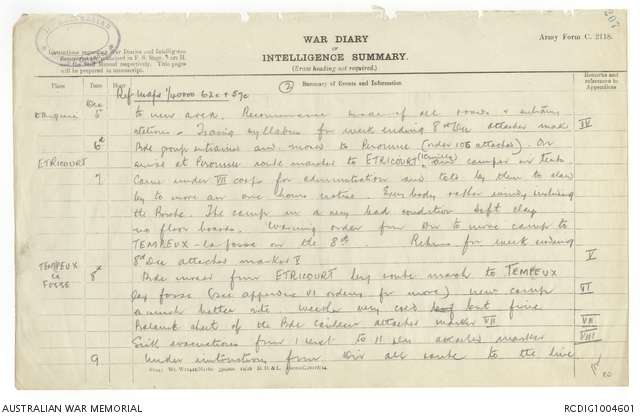 207
WAR DIARY
or
INTELLIGENCE SUMMARY.
(Erase heading not required.)
Army Form C. 2118.
Instructions regarding War Diaries and Intelligence
Summaries are contained in F. S. Regs., Part II.
and the Staff Manual respectively. Title pages
will be prepared in manuscript.
Place
Date
Hour
Summary of Events and Information
Remarks and
references to
Appendices
Ref Maps 1/40000 62c + 57c
Dec
5
to new area. Reconnaissance made of all roads +
stations. Training syllabus for week ending 8th Dec attached mark
IV
6th
Bde group entrained and moved to Peronne (order 106 attached). On
ETRICOURT
arrival at Peronne route marched to ETRICOURT and camped in tents
7
Came under VII corps for administration and told by them to stand
by to move at one hours notice. Everybody rather
the Boche. The camp in a very bad condition soft clay
no floor boards. Warning order from Div to move camp to
TEMPEUX-la fosse on the 8th. Returns for week ending
8th Dec attached marked V
V
TEMPEUX
la
FOSSE
8th
Bde moved from ETRICOURT by route march to TEMPEUX
la fosse (see appendix VI orders for move) new camp
VI
a much better site weather very cold but fine
Balance sheet of the Bde canteen attached marked VII
VII
Sick evacuations from 1 to Dec attached marked
VIII
9
Under instructions from Div all to the line
AUSTRALIAN WAR MEMORIAL
RCDIG1004601